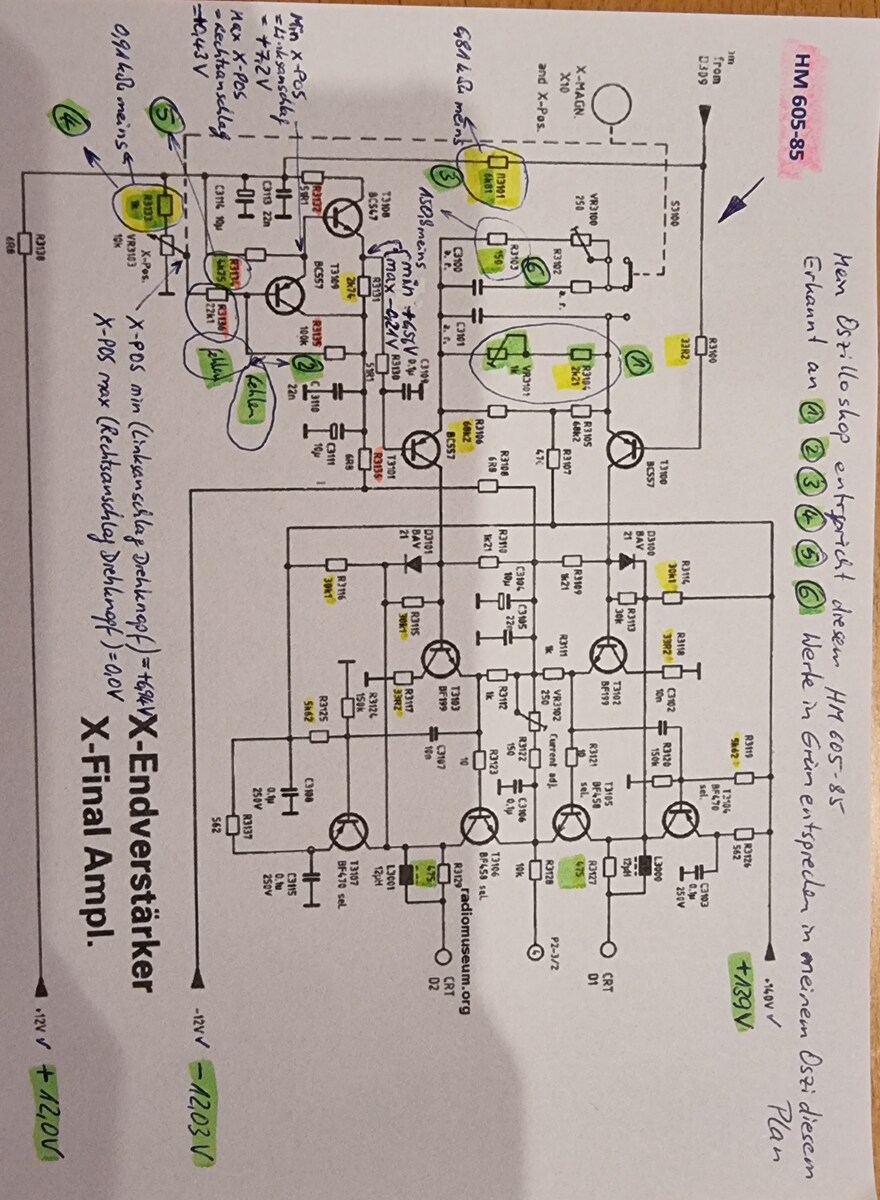 HM 605-85
Mein Oszilloshop entspricht diesem HM 605-85
Erkannt an ① ② ③ ④ ⑤ ⑥ Werte in Grün entsprechen in meinem Oszi diesem
Plan
from
D309
X-MAGN.
X10
and X-Pos.
S3100
R3100
33R2
6,81 kΩ meins
R3101
6k81
③
VR3100
250
R3102
a.r.
R3103
150
⑥
150,8 meins
C3100
a.r.
C3101
a.r.
①
VR3101
1k
R3104
2k21
R3105
68k2
R3106
68k2
R3107
47
T3100
BC557
T3101
BC557
R3108
6R8
Min X-POS
= Linksanschlag
= +7,2V
Max X-POS
= Rechtsanschlag
T3108
BC547
R3132
51R1
C3113 22n
C3114 10µ
T3109
BC557
R3131
2k74
min +6,56V
max -0,21V
R3130
51R1
C3109
0.1µ
R3134
4k75
R3135
100k
R3136
22k1
②
fehlen
C 3110
22n
C3111
10µ
R3136
6R8
0,91 kΩ meins
④
⑤
R3133
1k
VR3103
10k
X-Pos.
R3138
6R8
X-POS min (Linksanschlag Drehknopf) = +6,94V
X-POS max (Rechtsanschlag Drehknopf) = 0,0V
D3100
BAV
21
D3101
BAV
21
R3109
1k21
R3110
1k21
C3104
10µ
C3105
22n
R3113
30k
R3114
30k1
R3115
30k1
R3116
30k1
R3118
33R2
R3117
33R2
T3102
BF199
T3103
BF199
R3111
1k
R3112
1k
VR3102
250
Current adj.
R3122
150
C3106
0.1µ
C3102
10n
R3120
150k
R3119
5k62
R3121
10
R3123
10
R3124
150k
R3125
5k62
C3107
10n
T3104
BF470
sel.
T3105
BF458
sel.
T3106
BF458 sel.
T3107
BF470 sel.
R3126
562
C3103
0.1µ
250V
L3000
12µH
R3127
475
R3128
10k
R3129
475
L3001
12µH
C3108
0.1µ
250V
R3137
562
C3115
0.1µ
250V
CRT
D1
P2-3/2
4
CRT
D2
radiomuseum.org
+140V ✓
+139V
-12V ✓
-12,03V
+12V ✓
+12,0V
X-Endverstärker
X-Final Ampl.